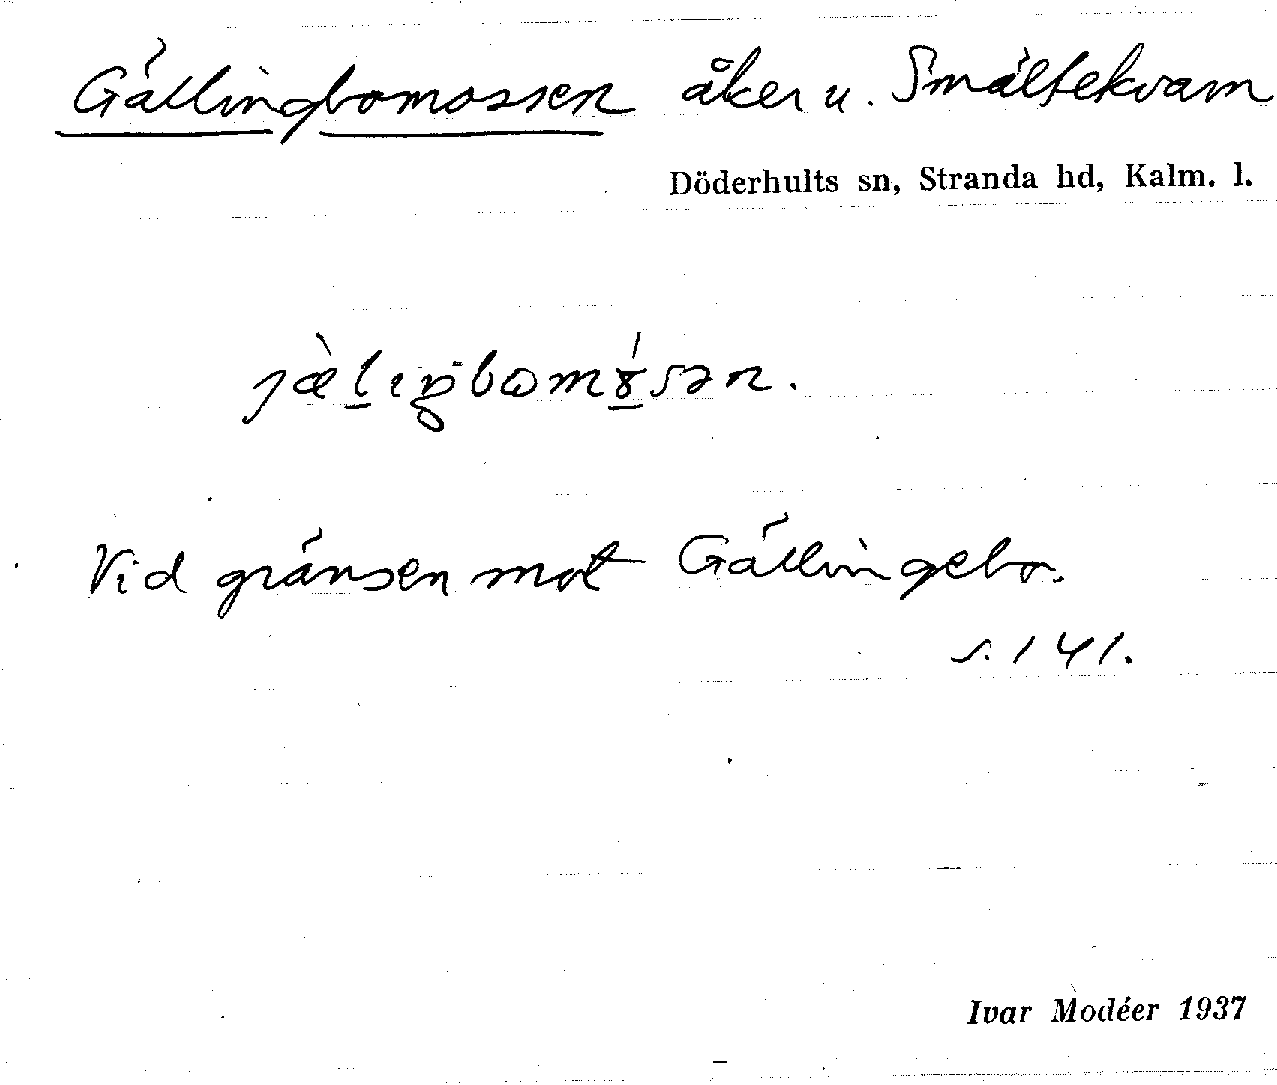 Gällingbomossen åker u. Smältekvarn
Döderhults sn, Stranda hd, Kalm. l.
Vid gränsen mot Gällingebo.
s. 141.
Ivar Modéer 1937